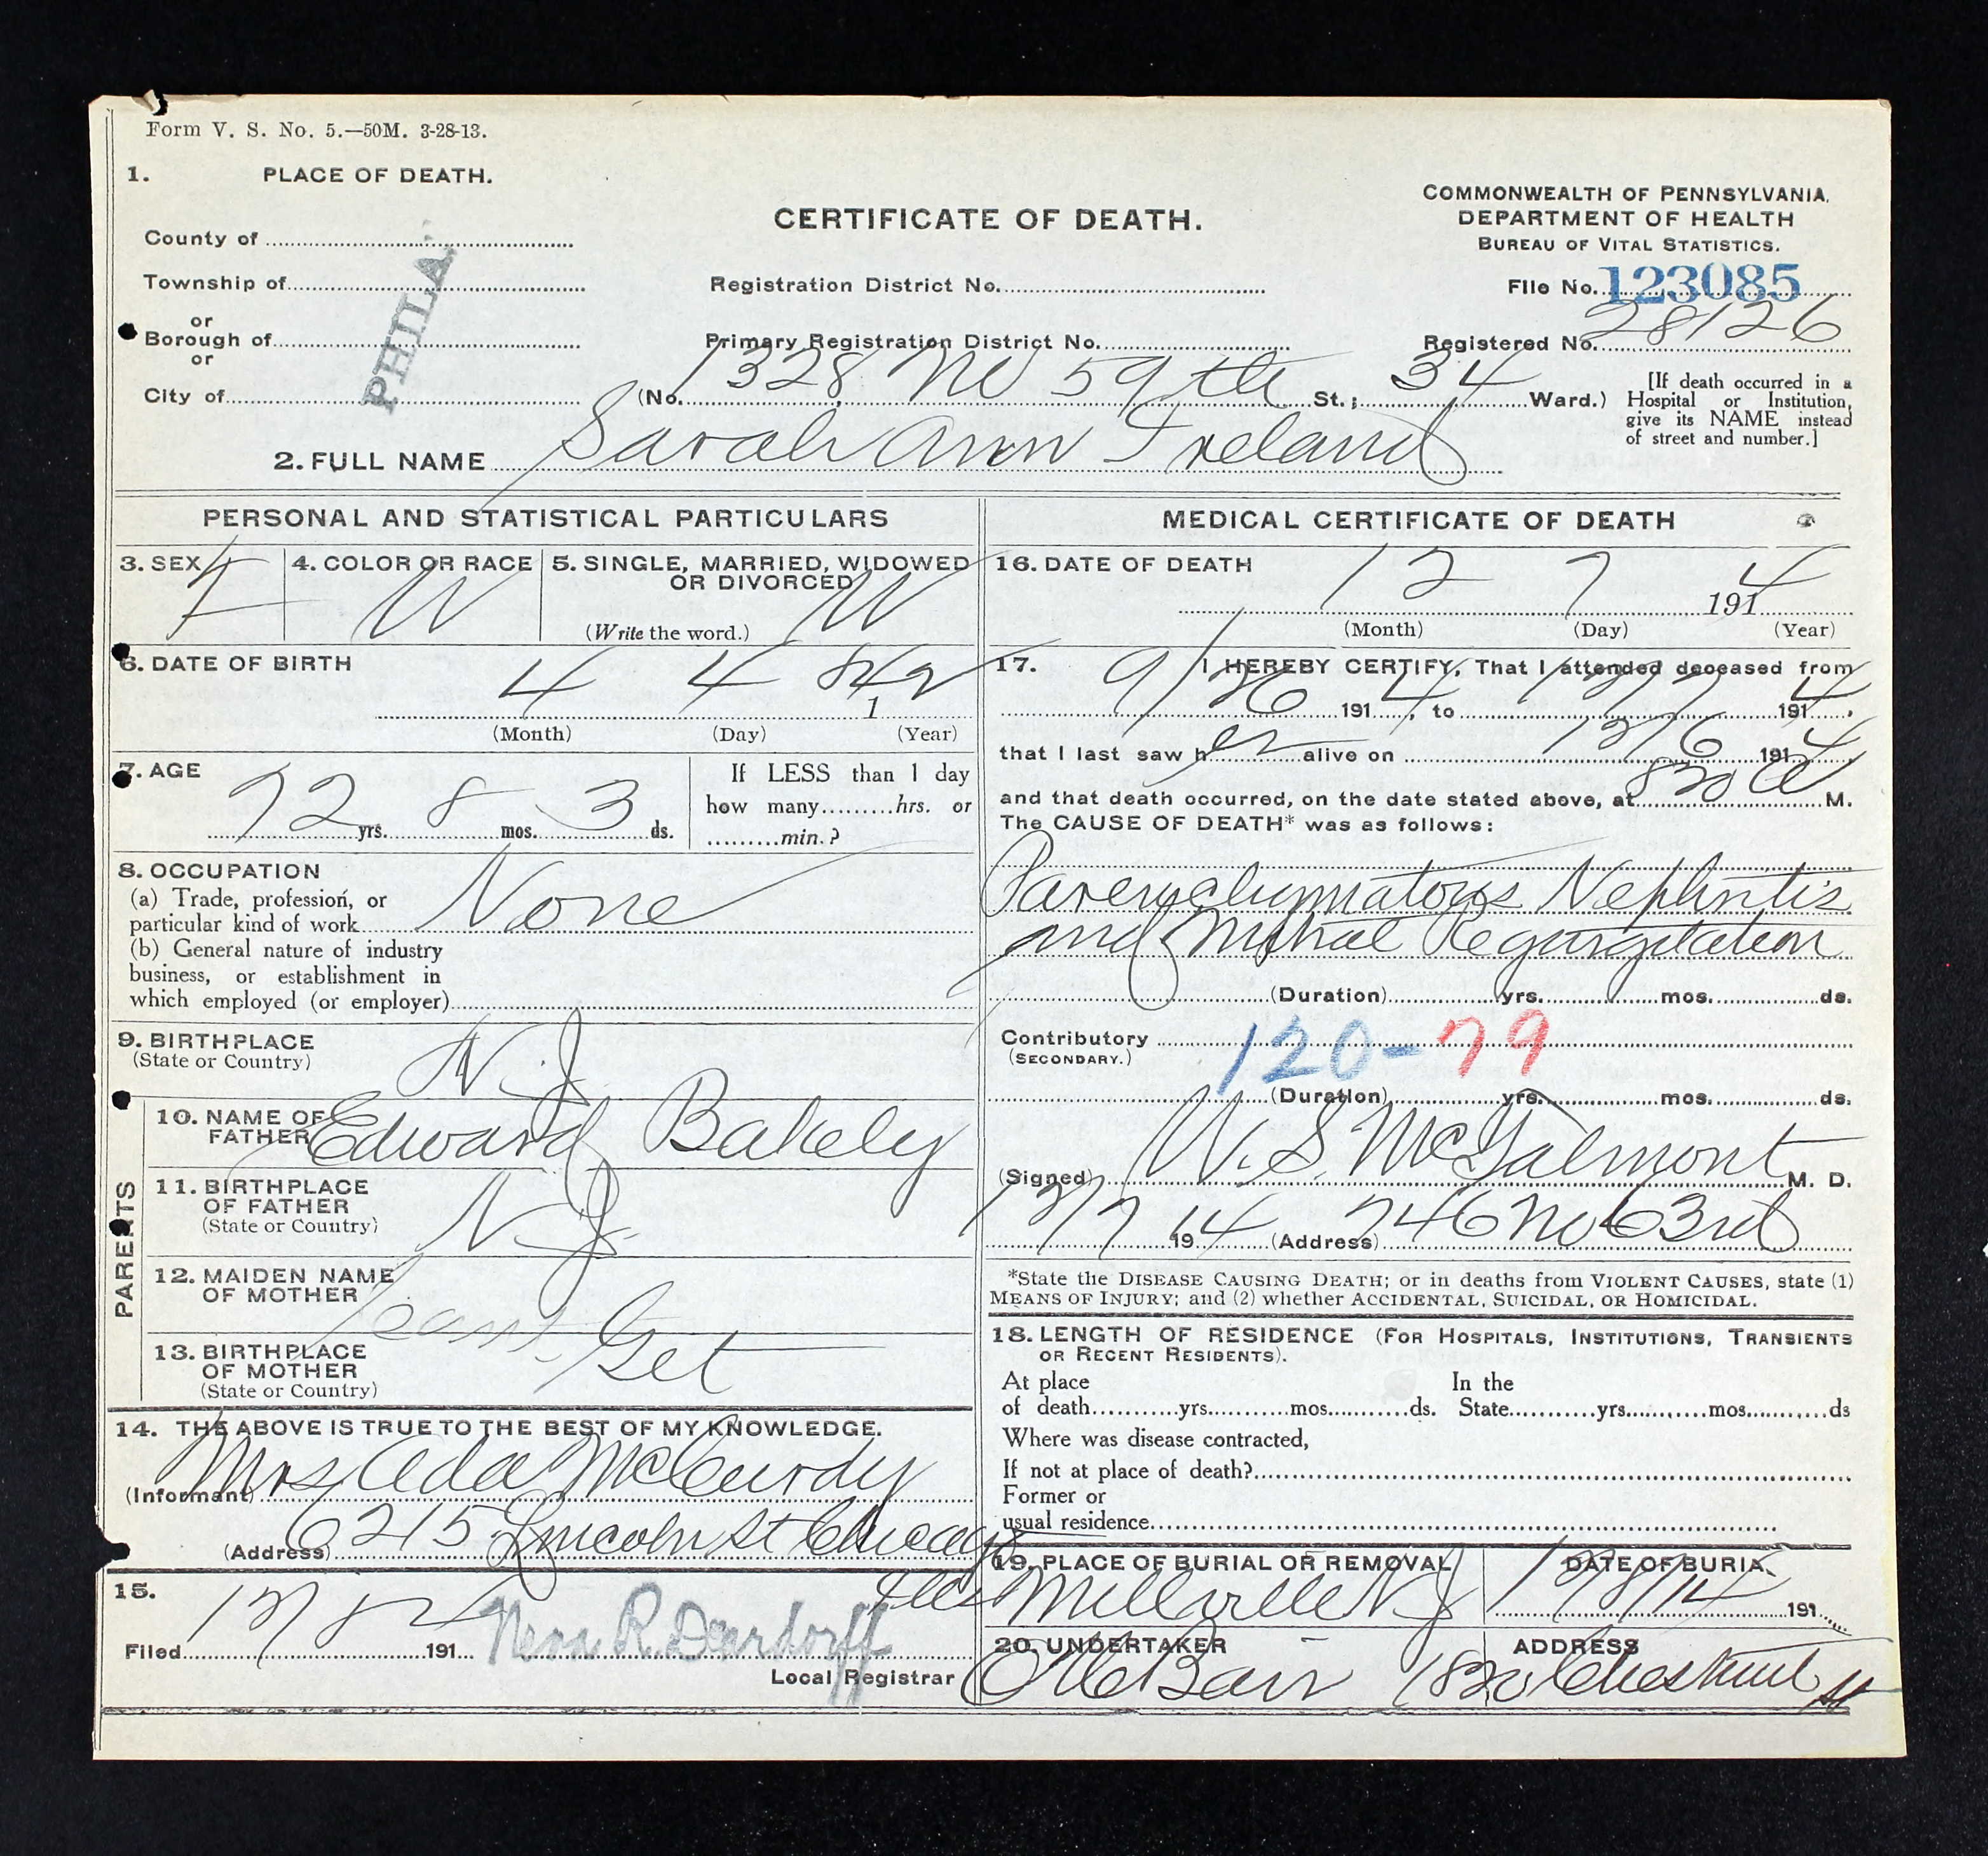 Form V. S. No. 5.—50M. 3-28-13.
1. PLACE OF DEATH.
County of
Township of
or
Borough of
or
City of
PHILA.
CERTIFICATE OF DEATH.
Registration District No.
Primary Registration District No.
(No. 1328 No 59th St.; 34 Ward.)
COMMONWEALTH OF PENNSYLVANIA.
DEPARTMENT OF HEALTH
BUREAU OF VITAL STATISTICS.
File No. 123085
Registered No. 28126
[If death occurred in a
Hospital or Institution,
give its NAME instead
of street and number.]
2. FULL NAME Sarah Ann Ireland
PERSONAL AND STATISTICAL PARTICULARS
3. SEX F
4. COLOR OR RACE W
5. SINGLE, MARRIED, WIDOWED
OR DIVORCED
(Write the word.) W
6. DATE OF BIRTH
4 4 1842
(Month) (Day) (Year)
7. AGE
72 yrs. 8 mos. 3 ds.
If LESS than 1 day
how many hrs. or
min.?
8. OCCUPATION
(a) Trade, profession, or
particular kind of work None
(b) General nature of industry
business, or establishment in
which employed (or employer)
9. BIRTHPLACE
(State or Country) N.J.
PARENTS
10. NAME OF
FATHER Edward Bakely
11. BIRTHPLACE
OF FATHER
(State or Country) N.J.
12. MAIDEN NAME
OF MOTHER Cant Get
13. BIRTHPLACE
OF MOTHER
(State or Country)
14. THE ABOVE IS TRUE TO THE BEST OF MY KNOWLEDGE.
(Informant) Mrs Ada McCurdy
(Address) 6215 Lincoln St Chicago
Ills
15.
Filed 12/8 191
Neva R. Deardorff
Local Registrar
MEDICAL CERTIFICATE OF DEATH
16. DATE OF DEATH
12 7 1914
(Month) (Day) (Year)
17. I HEREBY CERTIFY, That I attended deceased from
9/26 1914, to 12/7 1914,
that I last saw her alive on 12/6 1914
and that death occurred, on the date stated above, at 830 a M.
The CAUSE OF DEATH* was as follows:
Parenchymatous Nephritis
and Mitral Regurgitation
(Duration) yrs. mos. ds.
Contributory
(SECONDARY.)
120-79
(Duration) yrs. mos. ds.
(Signed) W. S. McGalmont M. D.
12/7 1914 (Address) 746 No 63rd
*State the DISEASE CAUSING DEATH; or in deaths from VIOLENT CAUSES, state (1)
MEANS OF INJURY; and (2) whether ACCIDENTAL, SUICIDAL, OR HOMICIDAL.
18. LENGTH OF RESIDENCE (FOR HOSPITALS, INSTITUTIONS, TRANSIENTS
OR RECENT RESIDENTS).
At place
of death yrs. mos. ds.
In the
State yrs. mos. ds
Where was disease contracted,
If not at place of death?
Former or
usual residence
19. PLACE OF BURIAL OR REMOVAL
Millville NJ
DATE OF BURIAL
12/8/14 191
20. UNDERTAKER
ADDRESS
Bair 1820 Chestnut St